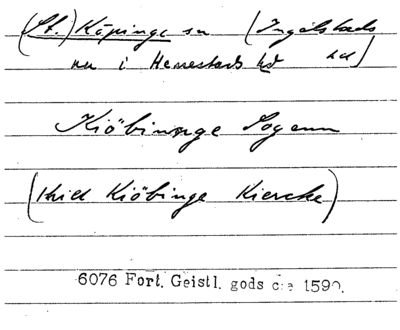 (St.) Köpinge sn (Ingelstads
nu i Herrestads hd hd)
Kiöbinnge Sogenn
(thill Kiöbinge Kiercke)
6076 Fort. Geistl. gods c:a 1590.